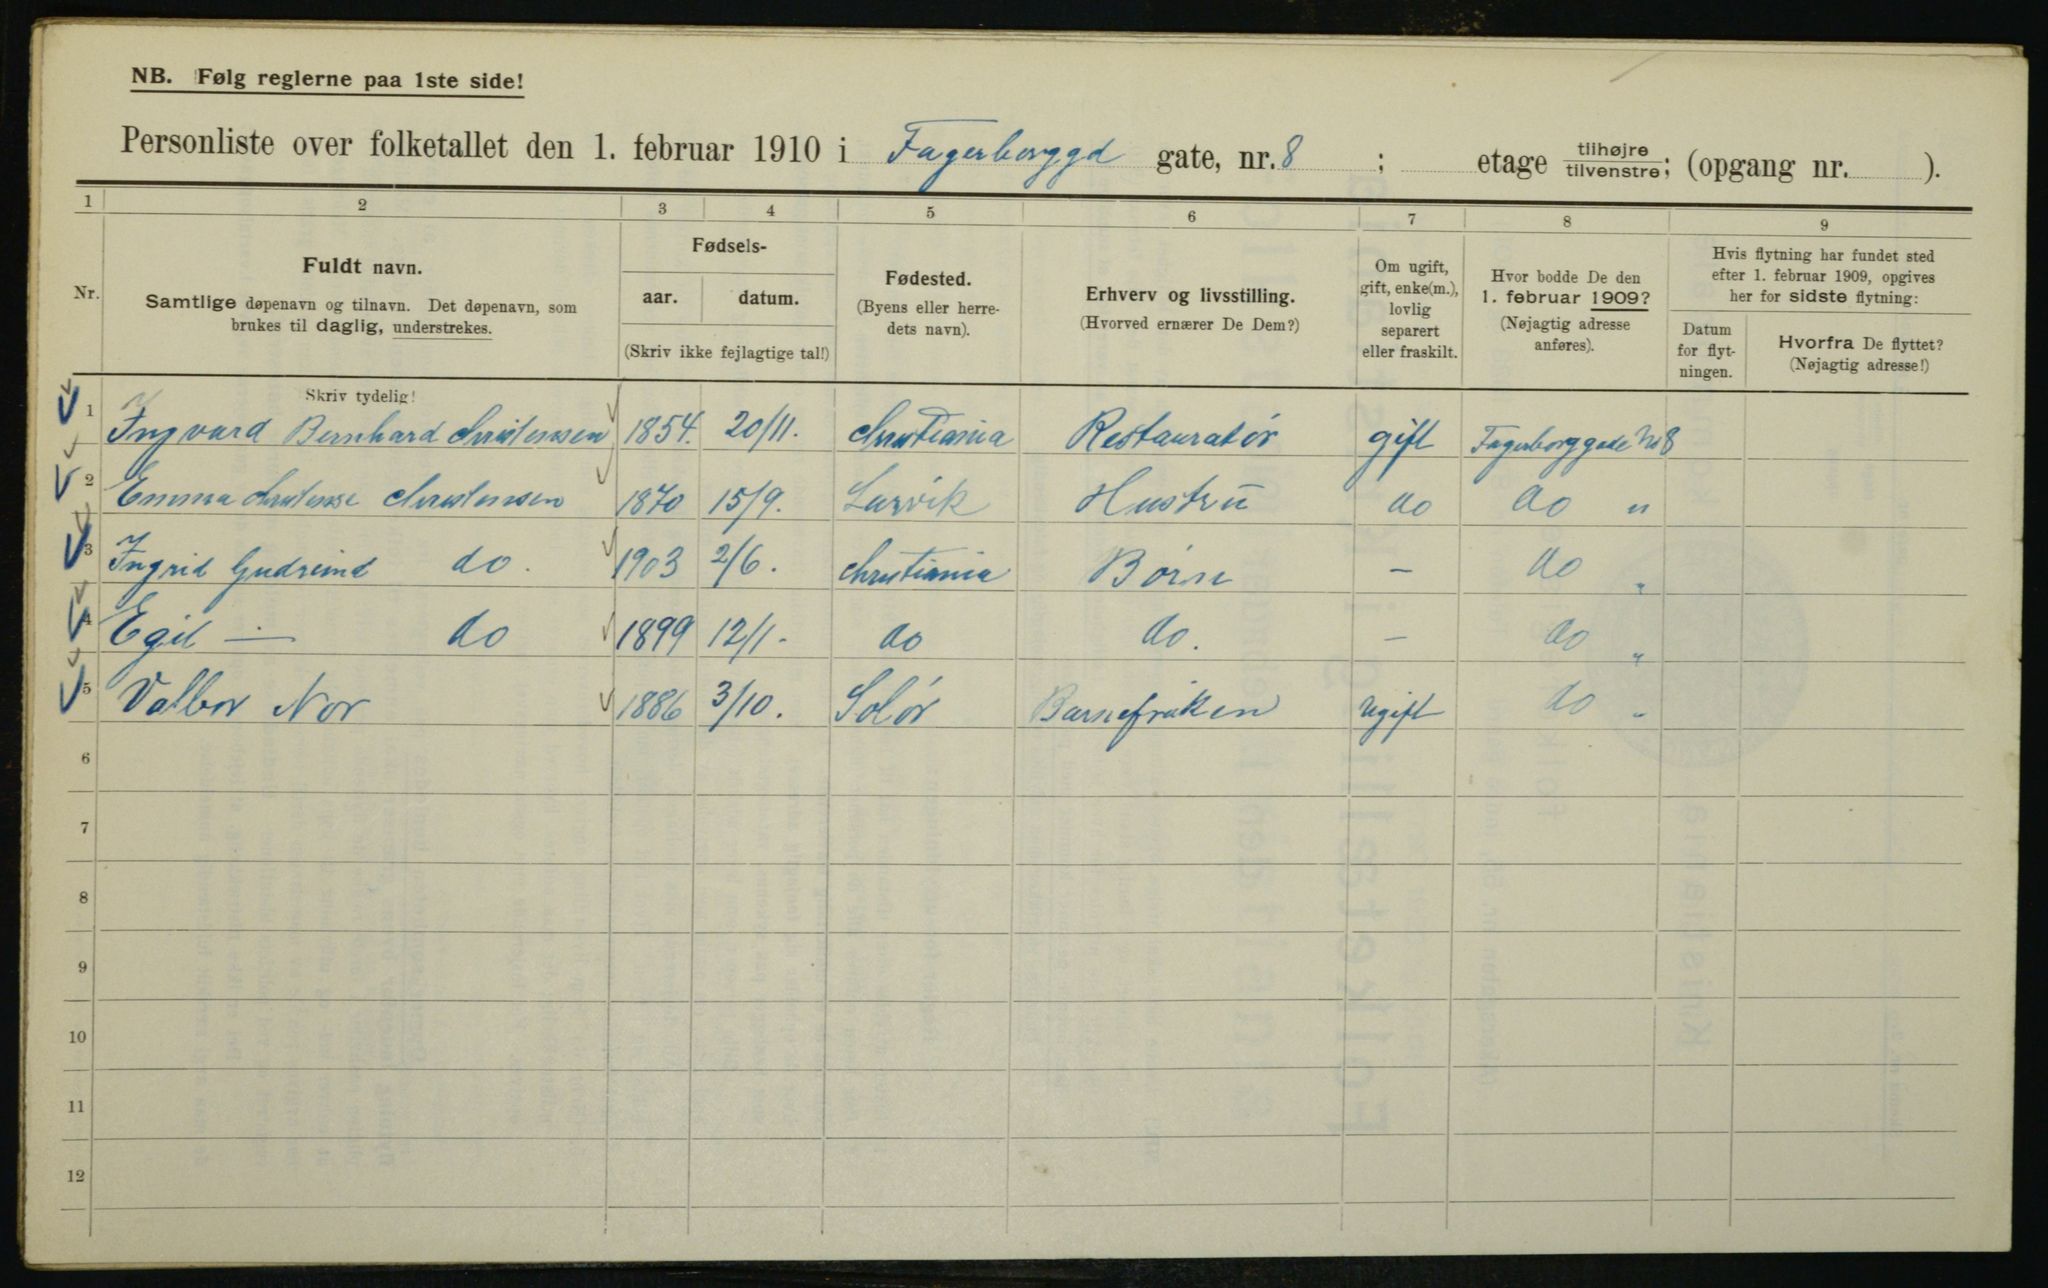 NB. Følg reglerne paa 1ste side!
Personliste over folketallet den 1. februar 1910 i Fagerborggd gate, nr. 8 ; etage tilhøjre/tilvenstre; (opgang nr. ).
1 2 3 4 5 6 7 8 9
Nr.
Fuldt navn.
Samtlige døpenavn og tilnavn. Det døpenavn, som
brukes til daglig, understrekes.
Fødsels-
aar. datum.
(Skriv ikke fejlagtige tal!)
Fødested.
(Byens eller herre-
dets navn).
Erhverv og livsstilling.
(Hvorved ernærer De Dem?)
Om ugift,
gift, enke(m.),
lovlig
separert
eller fraskilt.
Hvor bodde De den
1. februar 1909?
(Nøjagtig adresse
anføres).
Hvis flytning har fundet sted
efter 1. februar 1909, opgives
her for sidste flytning:
Datum
for flyt-
ningen.
Hvorfra De flyttet?
(Nøjagtig adresse!)
Skriv tydelig!
1 Ingvard Bernhard Christensen 1854. 20/11. Christiania Restauratør gift Fagerborggade No 8
2 Emma Christensen 1870 15/9. Larvik Hustru do do "
3 Ingrid Gudrund do. 1903 2/6. Christiania Børn — do "
4 Egil — do 1899 12/1. do do. — do "
5 Valbor Nor 1886 3/10. Solør Barnefrøken Ugift do "
6
7
8
9
10
11
12